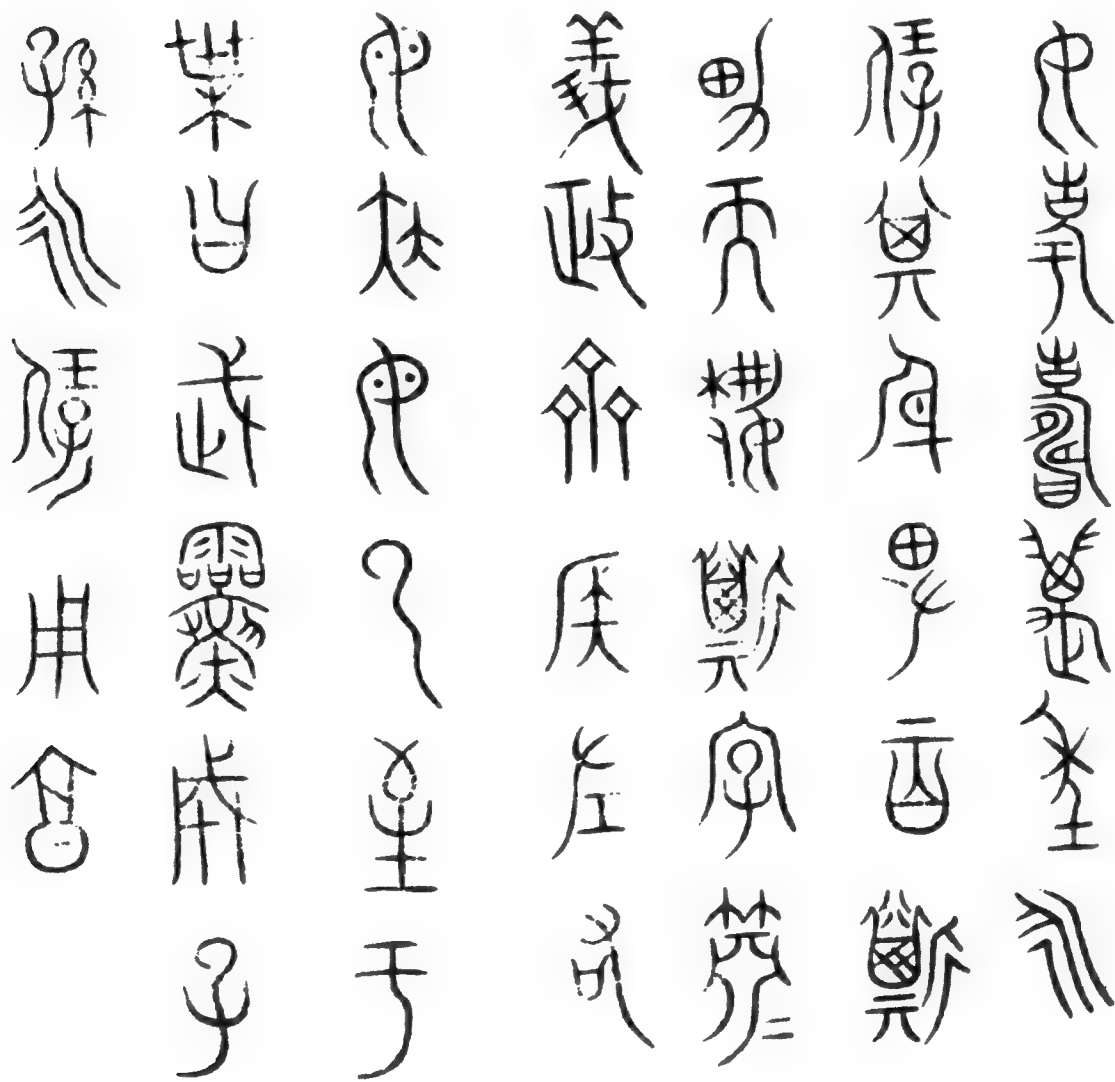 女考壽萬年永
保其身卑百斯
男而埶斯字肅=
義政齊侯左右
母疾母已至于
葉曰武靈成子
孫永保用享